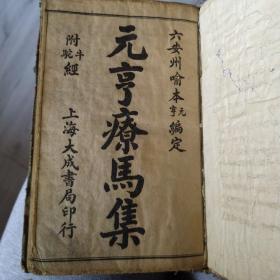 六安州喻本元亨編定
元亨療馬集
附牛駝經
上海大成書局印行